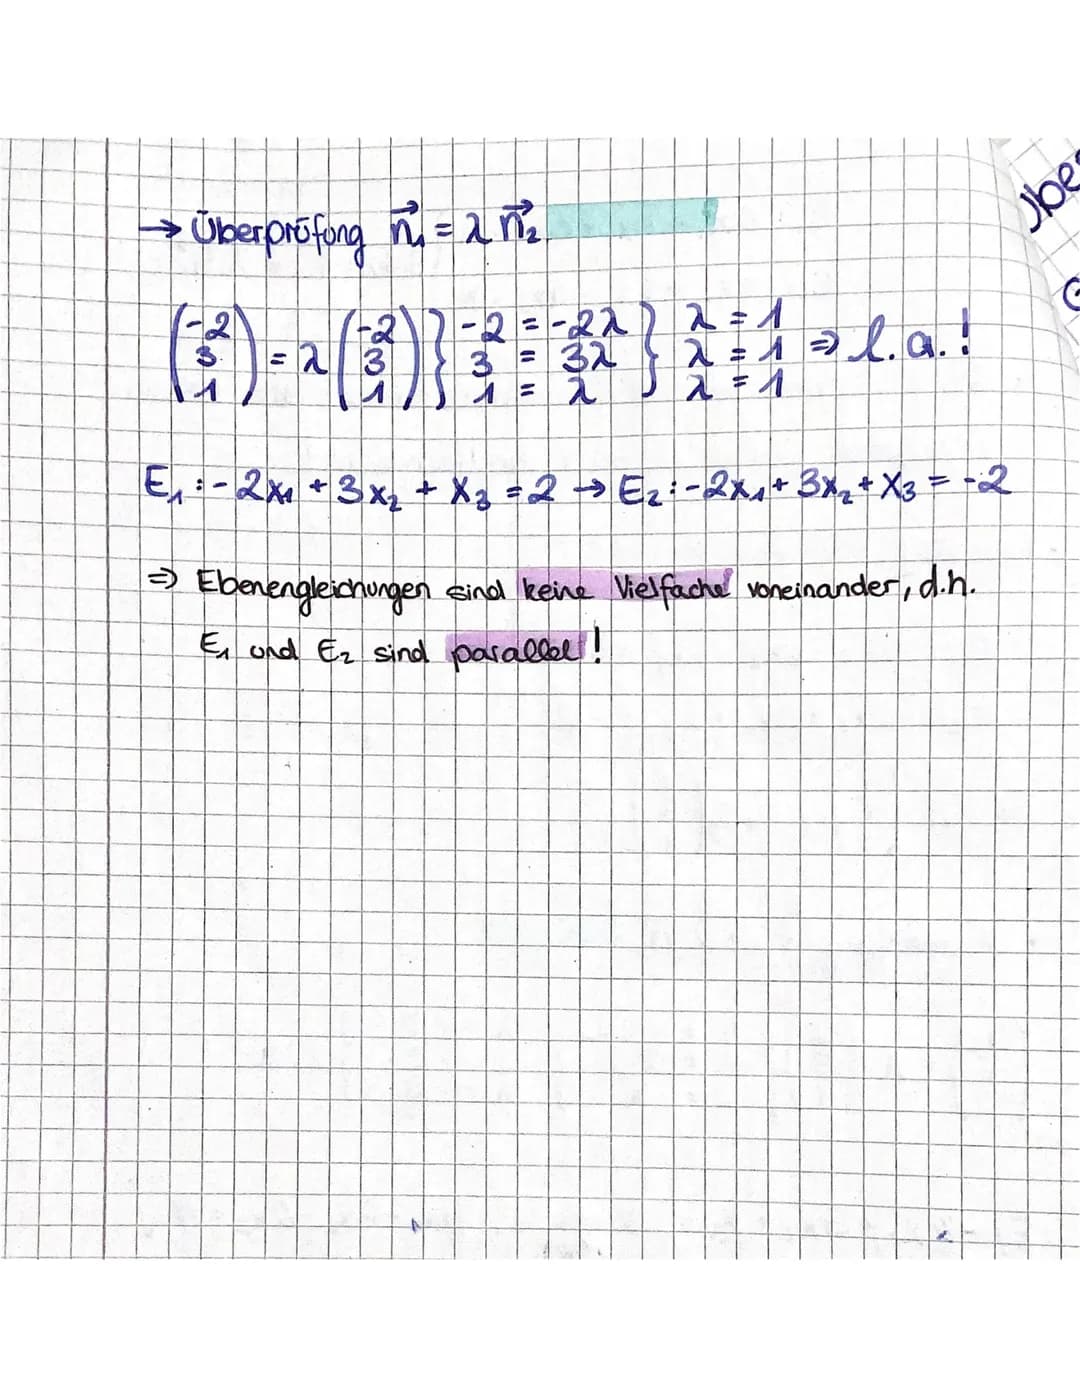 → Überprüfung n₁⃗ = λ n₂⃗
(-2 3 1) = λ (-2 3 1) } -2 = -2λ } λ = 1
3 = 3λ } λ = 1 ⇒ l.a.!
1 = λ } λ = 1
E₁: -2x₁ + 3x₂ + x₃ = 2 → E₂: -2x₁ + 3x₂ + x₃ = -2
⇒ Ebenengleichungen sind keine Vielfache voneinander, d.h.
E₁ und E₂ sind parallel!